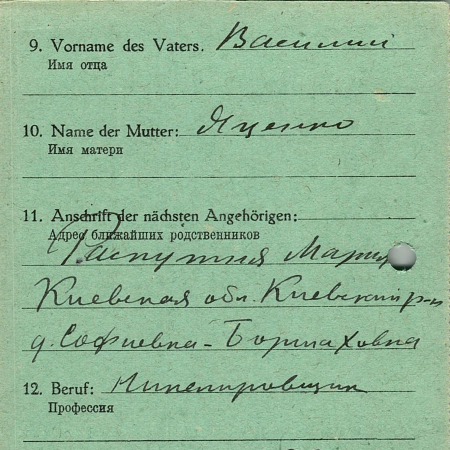 9. Vorname des Vaters. Василий
Имя отца
10. Name der Mutter: Яценко
Имя матери
11. Anschrift der nächsten Angehörigen:
Адрес ближайших родственников
Распутняя Мария
Киевская обл. Киевский р-н
д. Софиевка - Борщаховка
12. Beruf:
Профессия